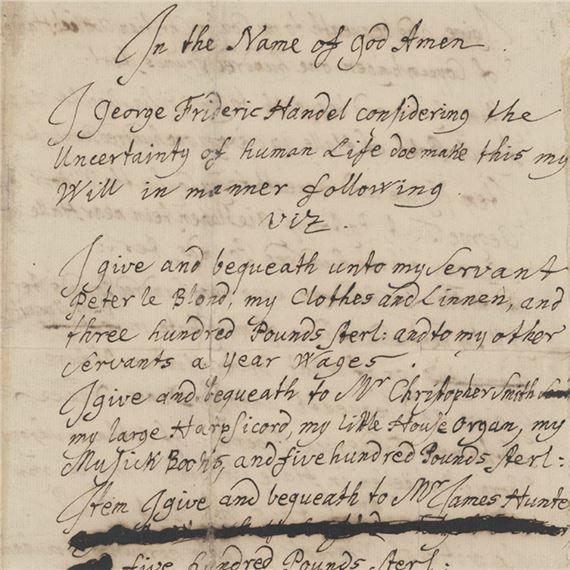 In the Name of god Amen .
I George Frideric Handel considering the
Uncertainty of human Life doe make this my
Will in manner following
viz .
I give and bequeath unto my Servant
Peter le Blond, my Clothes and Linnen, and
three hundred Pounds sterl: and to my other
servants a year Wages .
I give and bequeath to Mr Christopher Smith
my large Harpsicord, my little House Organ, my
Musick Books, and five hundred Pounds sterl:
Item I give and bequeath to Mr James Hunte
five hundred Pounds sterl: